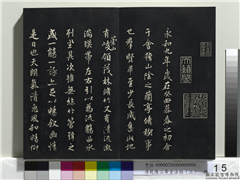 永和九年歲在癸丑暮春之初會
于會稽山陰之蘭亭脩稧事
也群賢畢至少長咸集此地
有崇山峻領茂林脩竹又有清流激
湍映帶左右引以為流觴曲水
列坐其次雖無絲竹管弦之
盛一觴一詠亦足以暢敘幽情
是日也天朗氣清惠風和暢仰
15